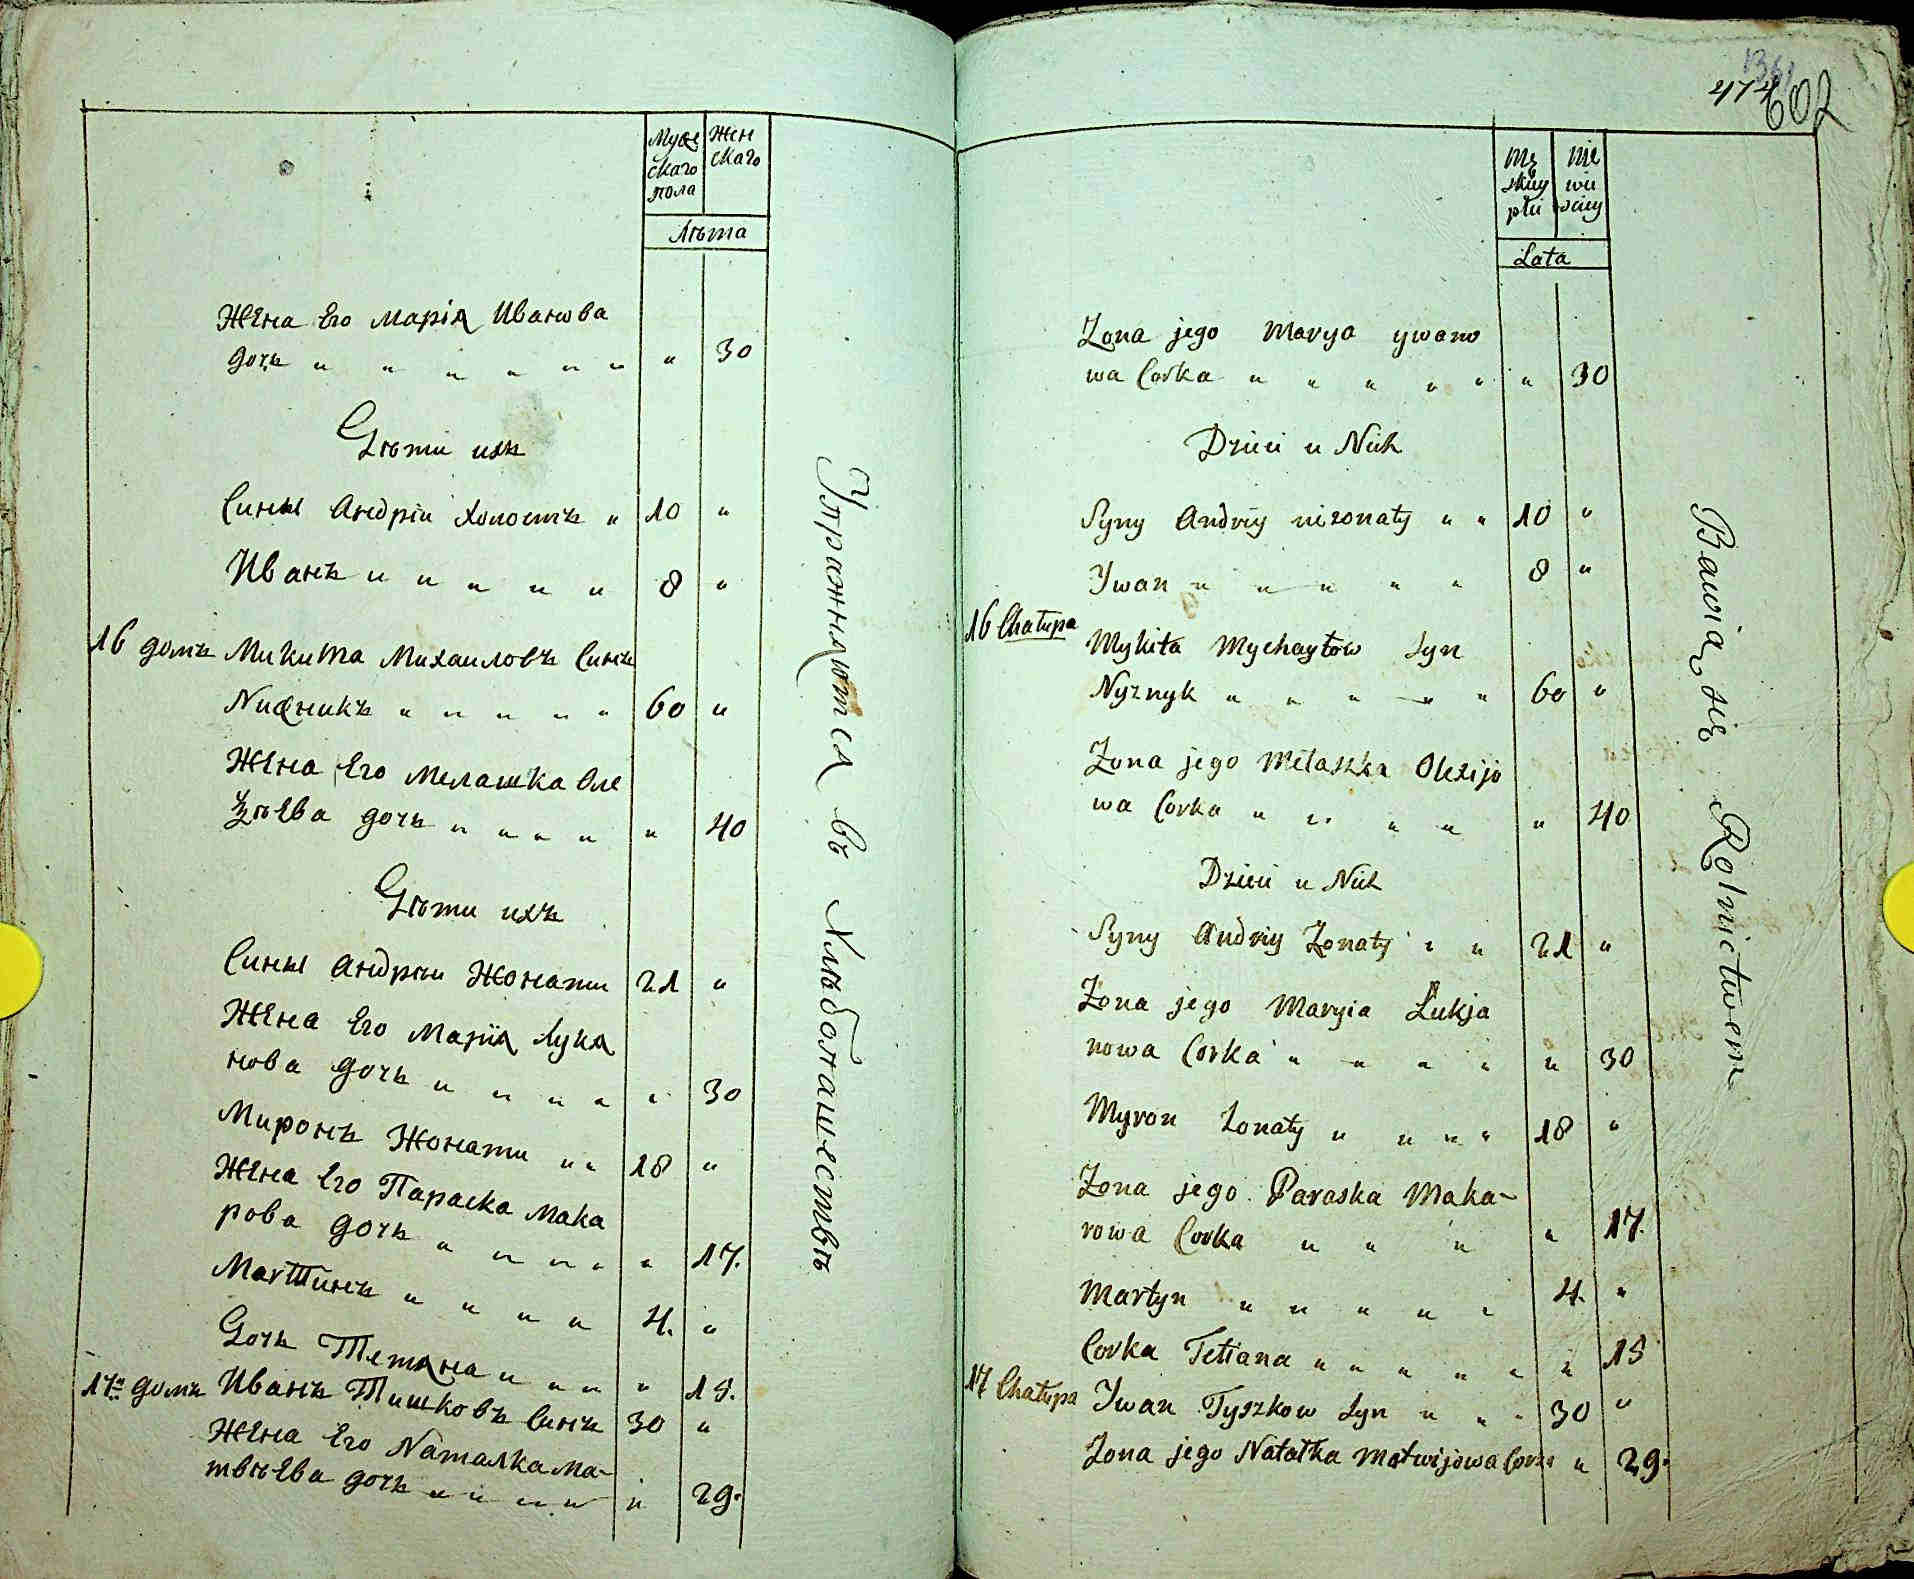 Муже
скаго
пола
Жен
скаго
Лѣта
Жена Его Марія Иванова
дочь " " " " " " " 30
Дѣти ихъ
Сины Андріи Холостъ " 10 "
Иванъ " " " " " 8 "
16 домъ Микита Михаиловъ Синъ
Nижникъ " " " " " 60 "
Жена Его Мелашка Оле
ѯѣева дочь " " " " " 40
Дѣти ихъ
Сины Андрѣи Жонати 21 "
Жена Его Марія Лукя
нова дочь " " " " " 30
Миронъ Жонати " " 18 "
Жена Его Параска Мака
рова дочь " " " " " 17.
Мартинъ " " " " 4. "
Дочь Тетяна " " " " " 15.
17й домъ Иванъ Тишковъ Синъ 30 "
Жена Его Nаталка Ма-
твѣева дочь " " " " " 29.
Упражняются въ Хлѣбопашествѣ
474
602
Mę
skiey
płci
Nie
wie
sciey
Lata
Zona jego Marya ywano
wa Corka " " " " " " 30
Dzieci u Nich
Syny Andriy niezonaty " " 10 "
Ywan " " " " " 8 "
16 Chałupa Mykita Mychayłow Syn
Nyznyk " " " " " 60 "
Zona jego Melaszka Olexijo
wa Corka " " " " " 40
Dzieci u Nich
Syny Andriy Zonaty " " 21 "
Zona jego Maryia Łukja
nowa Corka " " " " " 30
Myron Zonaty " " " " 18 "
Zona jego Paraska Maka-
rowa Corka " " " " 17.
Martyn " " " " " 4. "
Corka Tetiana " " " " " " 15
17 Chałupa Ywan Tyszkow Syn " " " 30 "
Zona jego Natałka Matwijowa Corka " 29.
Bawią się Rolnictwem